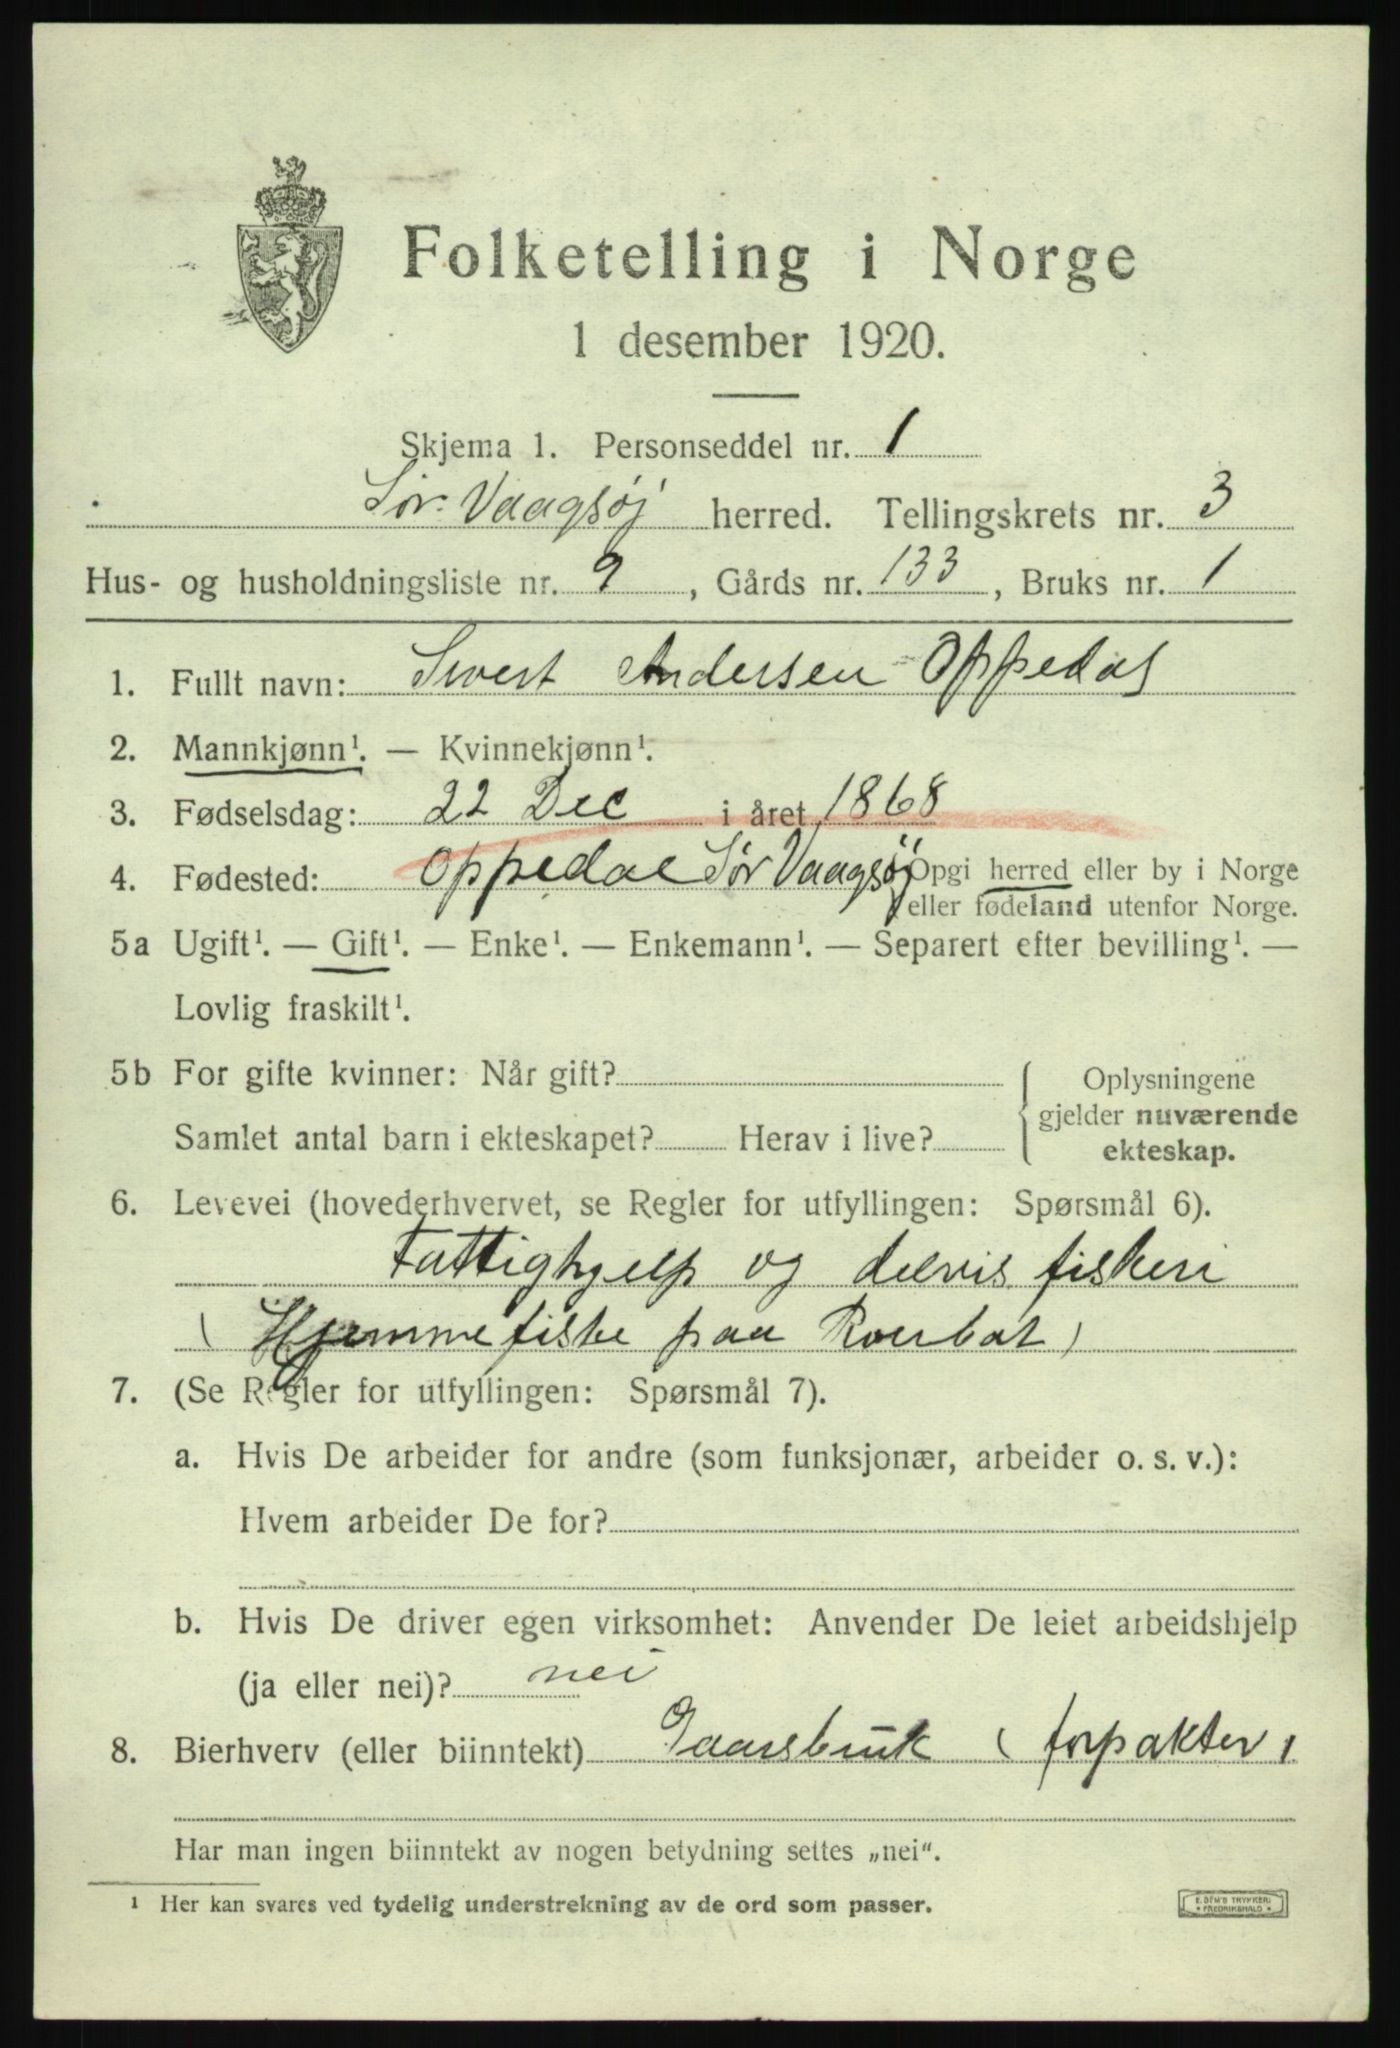 Folketelling i Norge
1 desember 1920.
Skjema 1. Personseddel nr. 1
Sør-Vaagsøj herred. Tellingskrets nr. 3
Hus- og husholdningsliste nr. 9, Gårds nr. 133, Bruks nr. 1
1. Fullt navn: Sivert Andersen Oppedal
2. Mannkjønn¹. — Kvinnekjønn¹.
3. Fødselsdag: 22 Dec i året 1868
4. Fødested: Oppedal Sør Vaagsøj Opgi herred eller by i Norge
eller fødeland utenfor Norge.
5a Ugift¹. — Gift¹. — Enke¹. — Enkemann¹. — Separert efter bevilling¹. —
Lovlig fraskilt¹.
5b For gifte kvinner: Når gift?
Samlet antal barn i ekteskapet? Herav i live?
Oplysningene
gjelder nuværende
ekteskap.
6. Levevei (hovederhvervet, se Regler for utfyllingen: Spørsmål 6).
Fattighjelp og delvis fiskeri
(Hjemmefiske paa Roerbat)
7. (Se Regler for utfyllingen: Spørsmål 7).
a. Hvis De arbeider for andre (som funksjonær, arbeider o. s. v.):
Hvem arbeider De for?
b. Hvis De driver egen virksomhet: Anvender De leiet arbeidshjelp
(ja eller nei)? nei
8. Bierhverv (eller biinntekt) Gaarsbruk (forpakter)
Har man ingen biinntekt av nogen betydning settes „nei“.
¹ Her kan svares ved tydelig understrekning av de ord som passer.
E. SEM'S TRYKKERI
FREDRIKSHALD